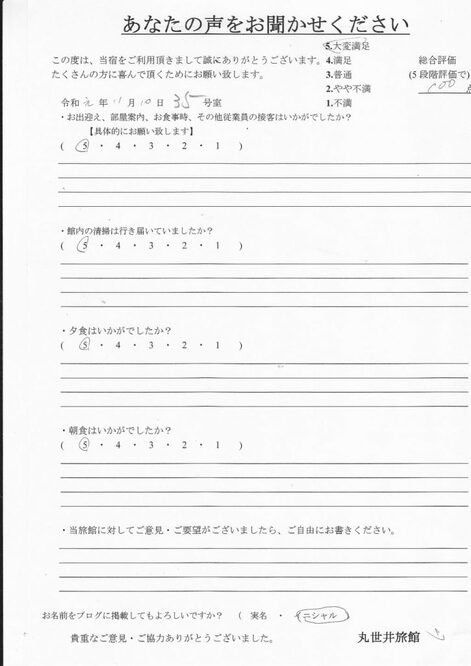 あなたの声をお聞かせください
5.大変満足
この度は、当宿をご利用頂きまして誠にありがとうございます。 4.満足 総合評価
たくさんの方に喜んで頂くためにお願い致します。 3.普通 (5段階評価で)
2.やや不満 100
令和 元 年 11 月 10 日 35 号室 1.不満
・お出迎え、部屋案内、お食事時、その他従業員の接客はいかがでしたか?
【具体的にお願い致します】
( 5 ・ 4 ・ 3 ・ 2 ・ 1 )
・館内の清掃は行き届いていましたか?
( 5 ・ 4 ・ 3 ・ 2 ・ 1 )
・夕食はいかがでしたか?
( 5 ・ 4 ・ 3 ・ 2 ・ 1 )
・朝食はいかがでしたか?
( 5 ・ 4 ・ 3 ・ 2 ・ 1 )
・当旅館に対してご意見・ご要望がございましたら、ご自由にお書きください。
お名前をブログに掲載してもよろしいですか? ( 実名 ・ イニシャル )
貴重なご意見・ご協力ありがとうございました。 丸世井旅館